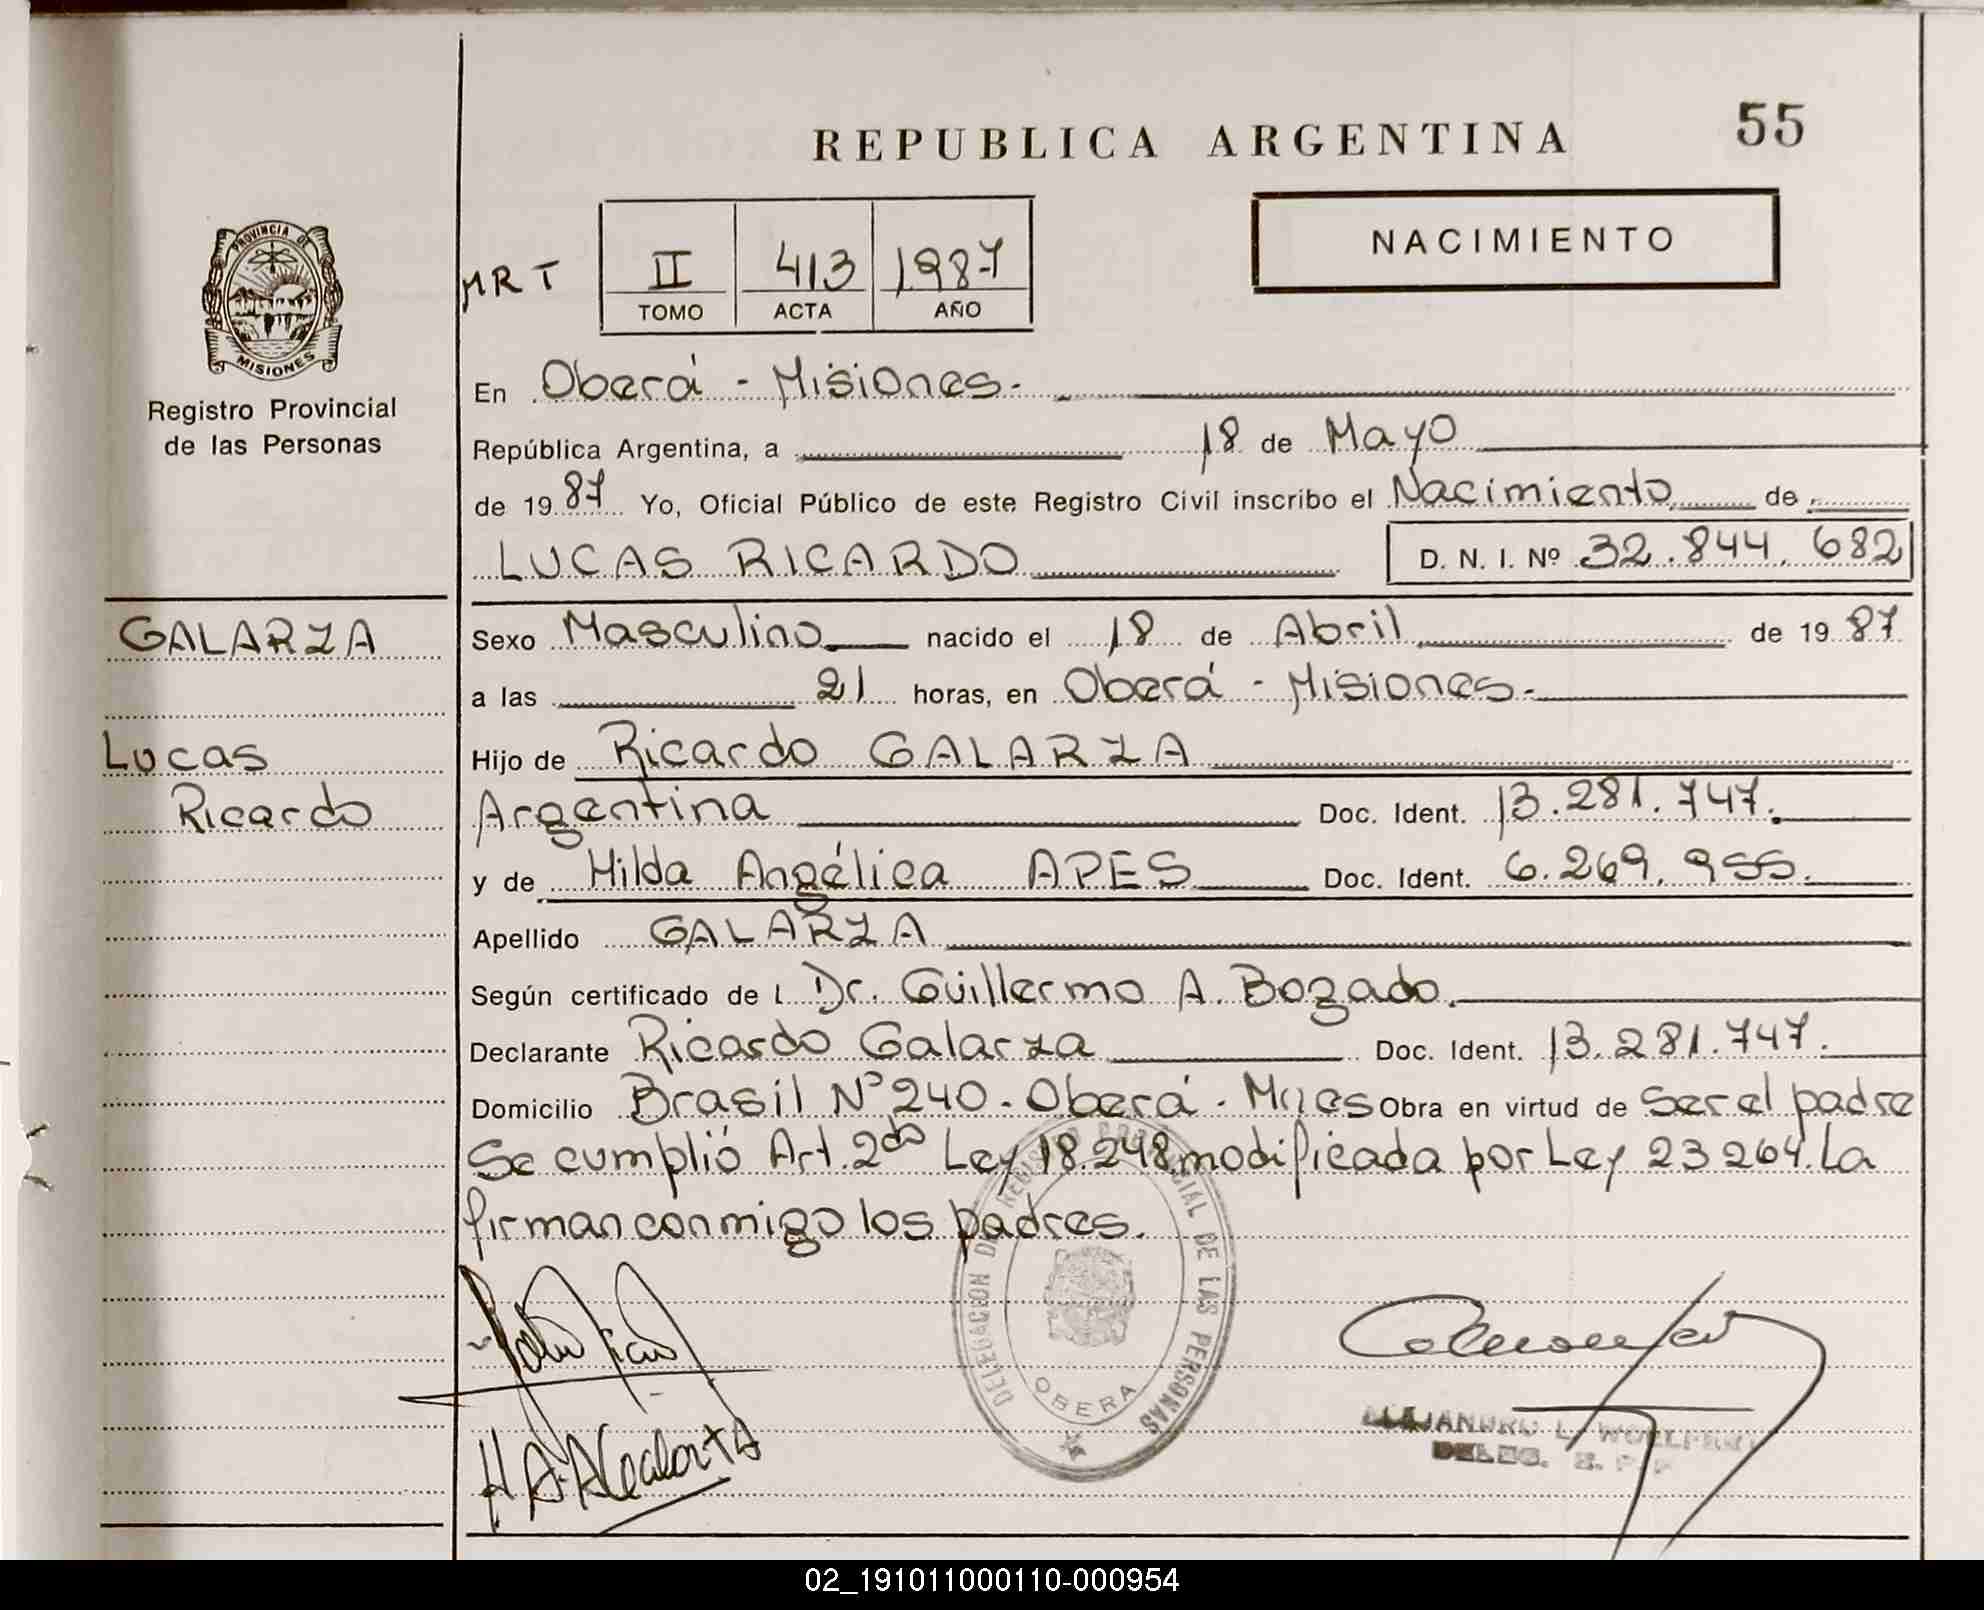 REPUBLICA ARGENTINA
55
PROVINCIA DE
MISIONES
Registro Provincial
de las Personas
MRT
II
413
1987
TOMO
ACTA
AÑO
NACIMIENTO
En Oberá - Misiones.
República Argentina, a 18 de Mayo
de 1987 Yo, Oficial Público de este Registro Civil inscribo el Nacimiento de
LUCAS RICARDO D. N. I. Nº 32.844.682
GALARZA
Lucas
Ricardo
Sexo Masculino nacido el 18 de Abril de 1987
a las 21 horas, en Oberá - Misiones.
Hijo de Ricardo GALARZA
Argentina Doc. Ident. 13.281.747.
y de Hilda Angélica APES Doc. Ident. 6.269.955.
Apellido GALARZA
Según certificado de l Dr. Guillermo A. Bozado.
Declarante Ricardo Galarza Doc. Ident. 13.281.747.
Domicilio Brasil Nº 240. Oberá. Mnes Obra en virtud de Ser el padre
Se cumplió Art. 2do Ley 18.248 modificada por Ley 23264. La
firman conmigo los padres.
DELEGACION DEL REGISTRO PROVINCIAL DE LAS PERSONAS
OBERA
ALEJANDRO L.
DELEG.
02_191011000110-000954